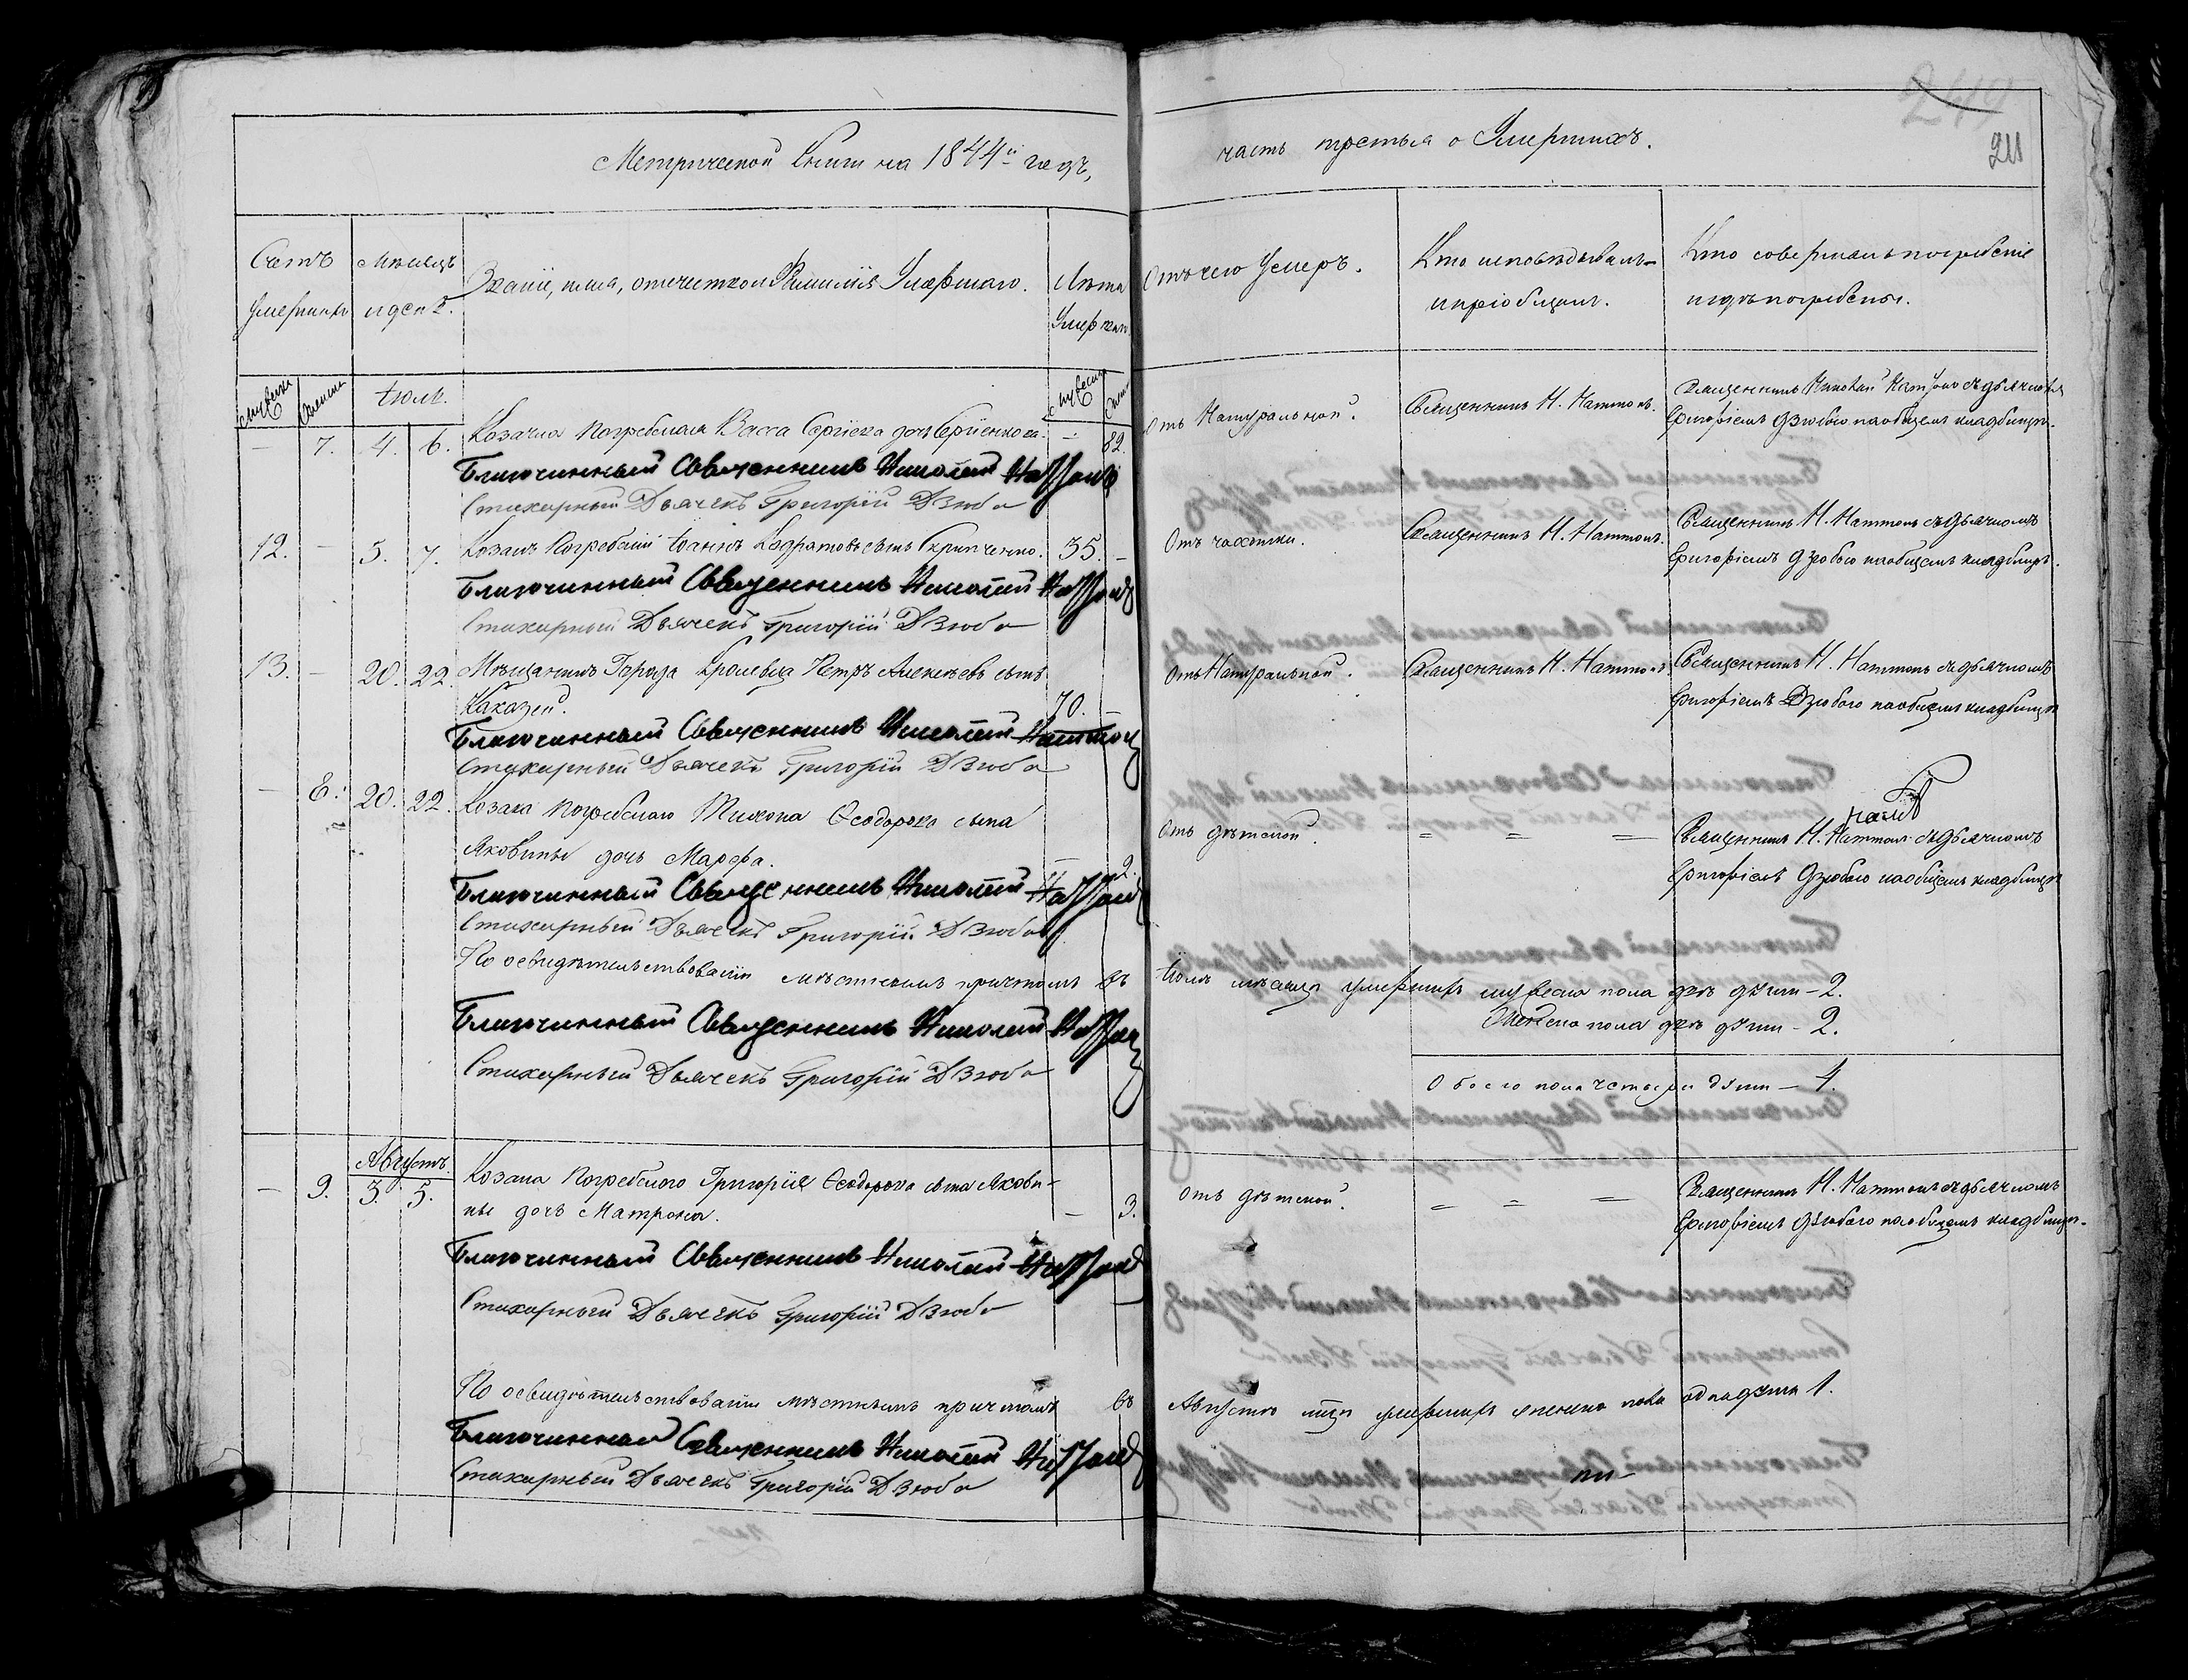 Метрической книги на 1844й годъ,
Счетъ умершихъ
Мѣсяцъ и день.
Званіе, имя, отечество и Фамилія Умершаго.
Лѣта Умершаго
мужеска
женска
Іюль.
мужеска
женска
— 7. 4. 6. Козачка Погребская Васса Сергіева дочь Сергіенкова. — 82.
Благочинный Священникъ Николай Наттонъ
Стихарный Дьячекъ Григорій Дзюба
12. — 5. 7. Козакъ Погребскій Іоаннъ Кодратовъ сынъ Скрипченко. 35. —
Благочинный Священникъ Николай Наттонъ
Стихарный Дьячекъ Григорій Дзюба
13. — 20. 22. Мѣщанинъ Города Кролевца Петръ Алексѣевъ сынъ
70. —
Благочинный Священникъ Николай Наттонъ
Стихарный Дьячекъ Григорій Дзюба
— 8. 20. 22. Козака Погребскаго Тихона Ѳеодорова сына
Яковины дочь Марѳа. — 2.
Благочинный Священникъ Николай Наттонъ
Стихарный Дьячекъ Григорій Дзюба
По освидѣтельствованіи мѣстнымъ причтомъ въ
Благочинный Священникъ Николай Наттонъ
Стихарный Дьячекъ Григорій Дзюба
Августъ.
— 9. 3. 5. Козака Погребского Григорія Ѳеодорова сынаЯкови-
ны дочь Матрона. — 3.
Благочинный Священникъ Николай Наттонъ
Стихарный Дьячекъ Григорій Дзюба
По освидѣтельствованіи мѣстнымъ причтомъ въ
Благочинный Священникъ Николай Наттонъ
Стихарный Дьячекъ Григорій Дзюба
часть третья о Умершихъ.
211
Отъ чего Умеръ.
Кто исповѣдывалъ и пріобщалъ.
Кто совершалъ погребеніе и гдѣ погребены.
Отъ Натуральной.
Священникъ Н. Наттонъ.
Священникъ Николай Наттонъ съ дьячкомъ
Григоріемъ Дзюбою на общемъ кладбищѣ.
Отъ чахотки.
Священникъ Н. Наттонъ.
Священникъ Н. Наттонъ съ дьячкомъ
Григоріемъ Дзюбою на общемъ кладбищѣ.
Отъ Натуральной.
Священникъ Н. Наттонъ.
Священникъ Н. Наттонъ съ дьячкомъ
Григоріемъ Дзюбою на общемъ кладбищѣ
Отъ дѣтской.
= = =
Священникъ Н. Наттонъ съ дьячкомъ
Григоріемъ Дзюбою на общемъ кладбищѣ
Іюлѣ мѣсяцѣ умершихъ мужеска пола двѣ души — 2.
Женска пола двѣ души — 2.
Обоего пола четыри души — 4.
Отъ дѣтской.
= = =
Священникъ Н. Наттонъ съ дьячкомъ
Григоріемъ Дзюбою на общемъ кладбищѣ.
Августѣ мцѣ умершихъ женска пола одна душа 1.